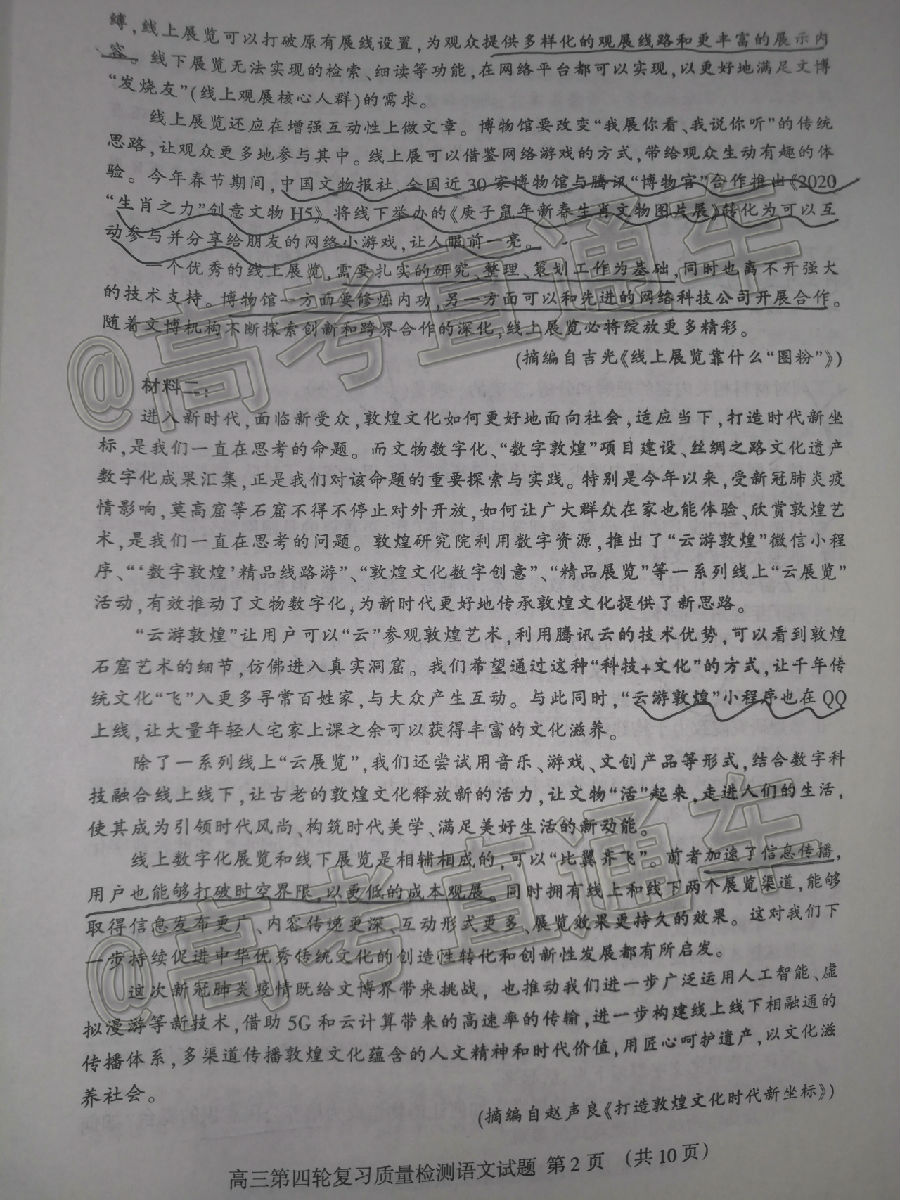 缚,线上展览可以打破原有展线设置,为观众提供多样化的观展线路和更丰富的展示内
容。线下展览无法实现的检索、细读等功能,在网络平台都可以实现,以更好地满足文博
“发烧友”(线上观展核心人群)的需求。
线上展览还应在增强互动性上做文章。博物馆要改变“我展你看、我说你听”的传统
思路,让观众更多地参与其中。线上展可以借鉴网络游戏的方式,带给观众生动有趣的体
验。今年春节期间,中国文物报社、全国近30家博物馆与腾讯“博物官”合作推出《2020
“生肖之力”创意文物H5》,将线下举办的《庚子鼠年新春生肖文物图片展》转化为可以互
动参与并分享给朋友的网络小游戏,让人眼前一亮。
一个优秀的线上展览,需要扎实的研究、整理、策划工作为基础,同时也离不开强大
的技术支持。博物馆一方面要修炼内功,另一方面可以和先进的网络科技公司开展合作。
随着文博机构不断探索创新和跨界合作的深化,线上展览必将绽放更多精彩。
(摘编自吉光《线上展览靠什么“圈粉”》)
材料二:
进入新时代,面临新受众,敦煌文化如何更好地面向社会,适应当下,打造时代新坐
标,是我们一直在思考的命题。而文物数字化、“数字敦煌”项目建设、丝绸之路文化遗产
数字化成果汇集,正是我们对该命题的重要探索与实践。特别是今年以来,受新冠肺炎疫
情影响,莫高窟等石窟不得不停止对外开放,如何让广大群众在家也能体验、欣赏敦煌艺
术,是我们一直在思考的问题。敦煌研究院利用数字资源,推出了“云游敦煌”微信小程
序、“‘数字敦煌’精品线路游”、“敦煌文化数字创意”、“精品展览”等一系列线上“云展览”
活动,有效推动了文物数字化,为新时代更好地传承敦煌文化提供了新思路。
“云游敦煌”让用户可以“云”参观敦煌艺术,利用腾讯云的技术优势,可以看到敦煌
石窟艺术的细节,仿佛进入真实洞窟。我们希望通过这种“科技+文化”的方式,让千年传
统文化“飞”入更多寻常百姓家,与大众产生互动。与此同时,“云游敦煌”小程序也在QQ
上线,让大量年轻人宅家上课之余可以获得丰富的文化滋养。
除了一系列线上“云展览”,我们还尝试用音乐、游戏、文创产品等形式,结合数字科
技融合线上线下,让古老的敦煌文化释放新的活力,让文物“活”起来,走进人们的生活,
使其成为引领时代风尚、构筑时代美学、满足美好生活的新动能。
线上数字化展览和线下展览是相辅相成的,可以“比翼齐飞”。前者加速了信息传播,
用户也能够打破时空界限,以更低的成本观展。同时拥有线上和线下两个展览渠道,能够
取得信息发布更广、内容传递更深、互动形式更多、展览效果更持久的效果。这对我们下
一步持续促进中华优秀传统文化的创造性转化和创新性发展都有所启发。
这次新冠肺炎疫情既给文博界带来挑战,也推动我们进一步广泛运用人工智能、虚
拟漫游等新技术,借助5G和云计算带来的高速率的传输,进一步构建线上线下相融通的
传播体系,多渠道传播敦煌文化蕴含的人文精神和时代价值,用匠心呵护遗产,以文化滋
养社会。
(摘编自赵声良《打造敦煌文化时代新坐标》)
高三第四轮复习质量检测语文试题 第2页 (共10页)
@高考直通车
@高考直通车